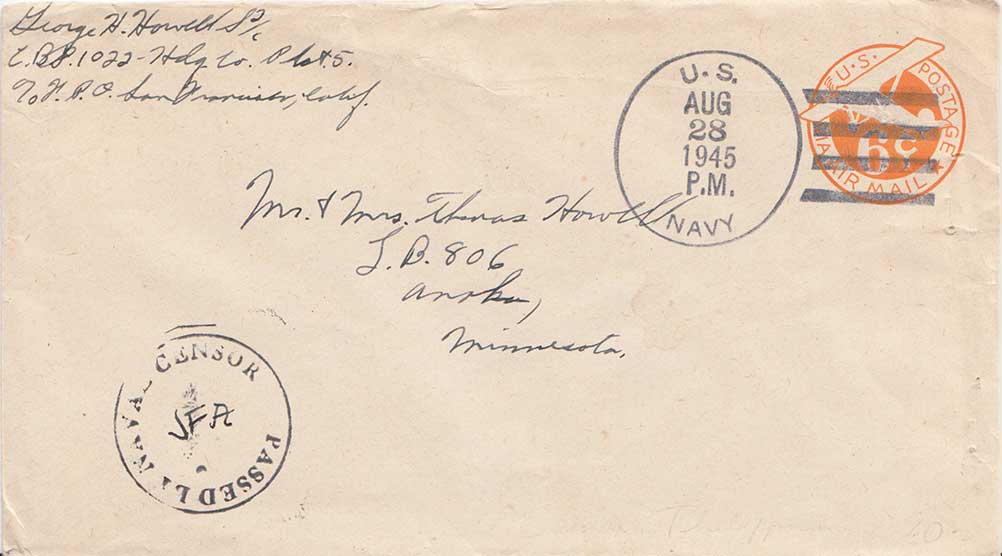 George H. Howell S 2/c
C.B.D. 1022-Hdq Co. Plat 5.
c/o F.P.O. San Francisco, Calif.
U.S.
AUG
28
1945
P.M.
NAVY
U.S. POSTAGE
6¢
VIA AIR MAIL
Mr. & Mrs. Thomas Howell
L.B. 806
Anoka,
Minnesota.
PASSED BY NAVAL CENSOR